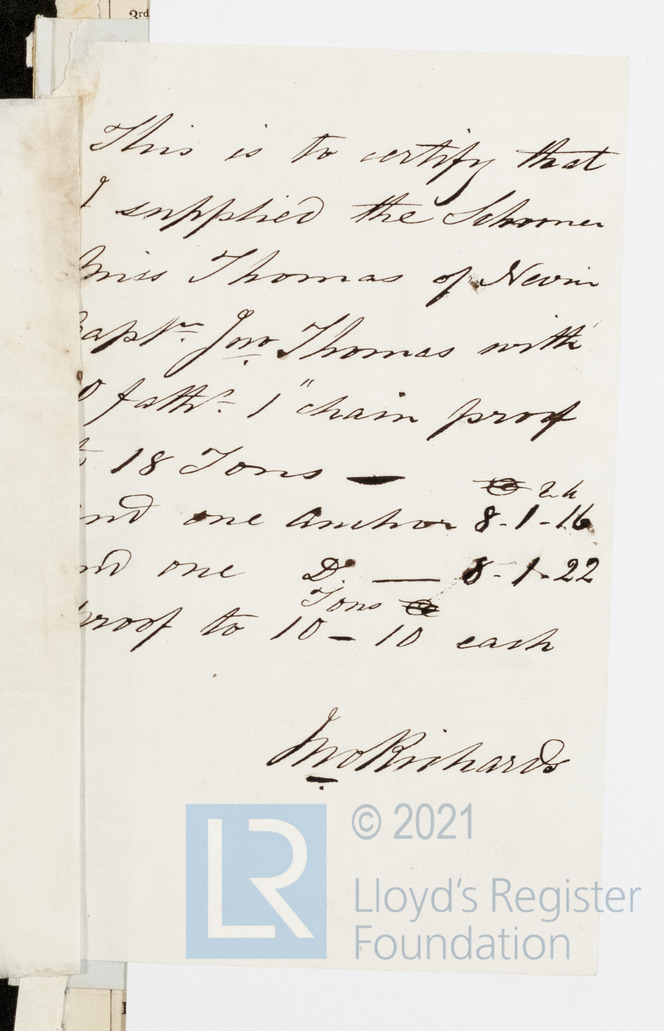 3rd
This is to certify that
I supplied the Schooner
Miss Thomas of Nevin
Captn. Jno. Thomas with
0 faths. 1" chain proof
18 Tons —
and one anchor 8-1-16
and one Do. — 8-1-22
Tons
proof to 10-10 each
Jno Richards
LR
© 2021
Lloyd's Register
Foundation